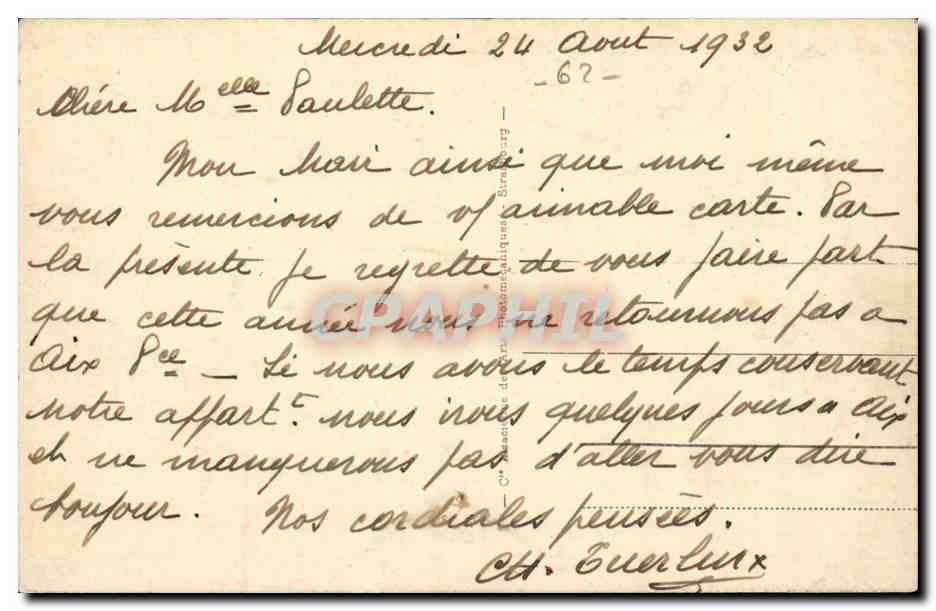 Mercredi 24 Aout 1932
- 62 -
Chère Melle Paulette.
Mon Mari ainsi que moi même
vous remercions de v/ aimable carte. Par
la présente je regrette de vous faire part
que cette année nous ne retournons pas a
Aix Pce - Si nous avons le temps conservant
notre appart t. nous irons quelques jours a Aix
et ne manquerons pas d'aller vous dire
bonjour. Nos cordiales pensées.
CH.
CPAPHIL
- Cie Alsacienne des Arts Photomécaniques - Strasbourg -